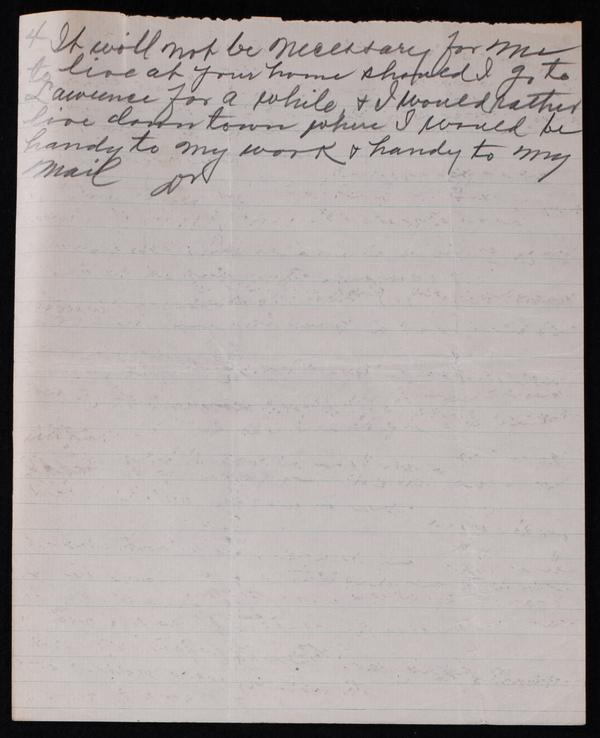 4 It will not be necessary for me
to live at your home should I go to
Lawrence for a while & I would rather
live down town where I would be
handy to my work & handy to my
mail